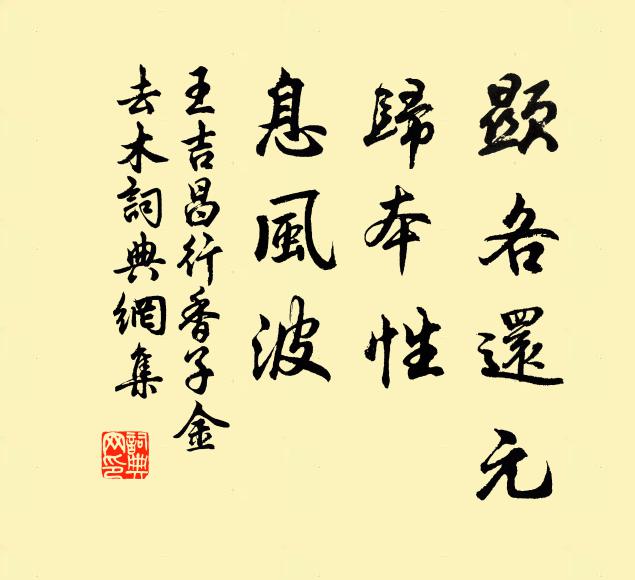 顯各還元
歸本性
息風波
王吉昌行香子金
去木詞典網集
詞典網印